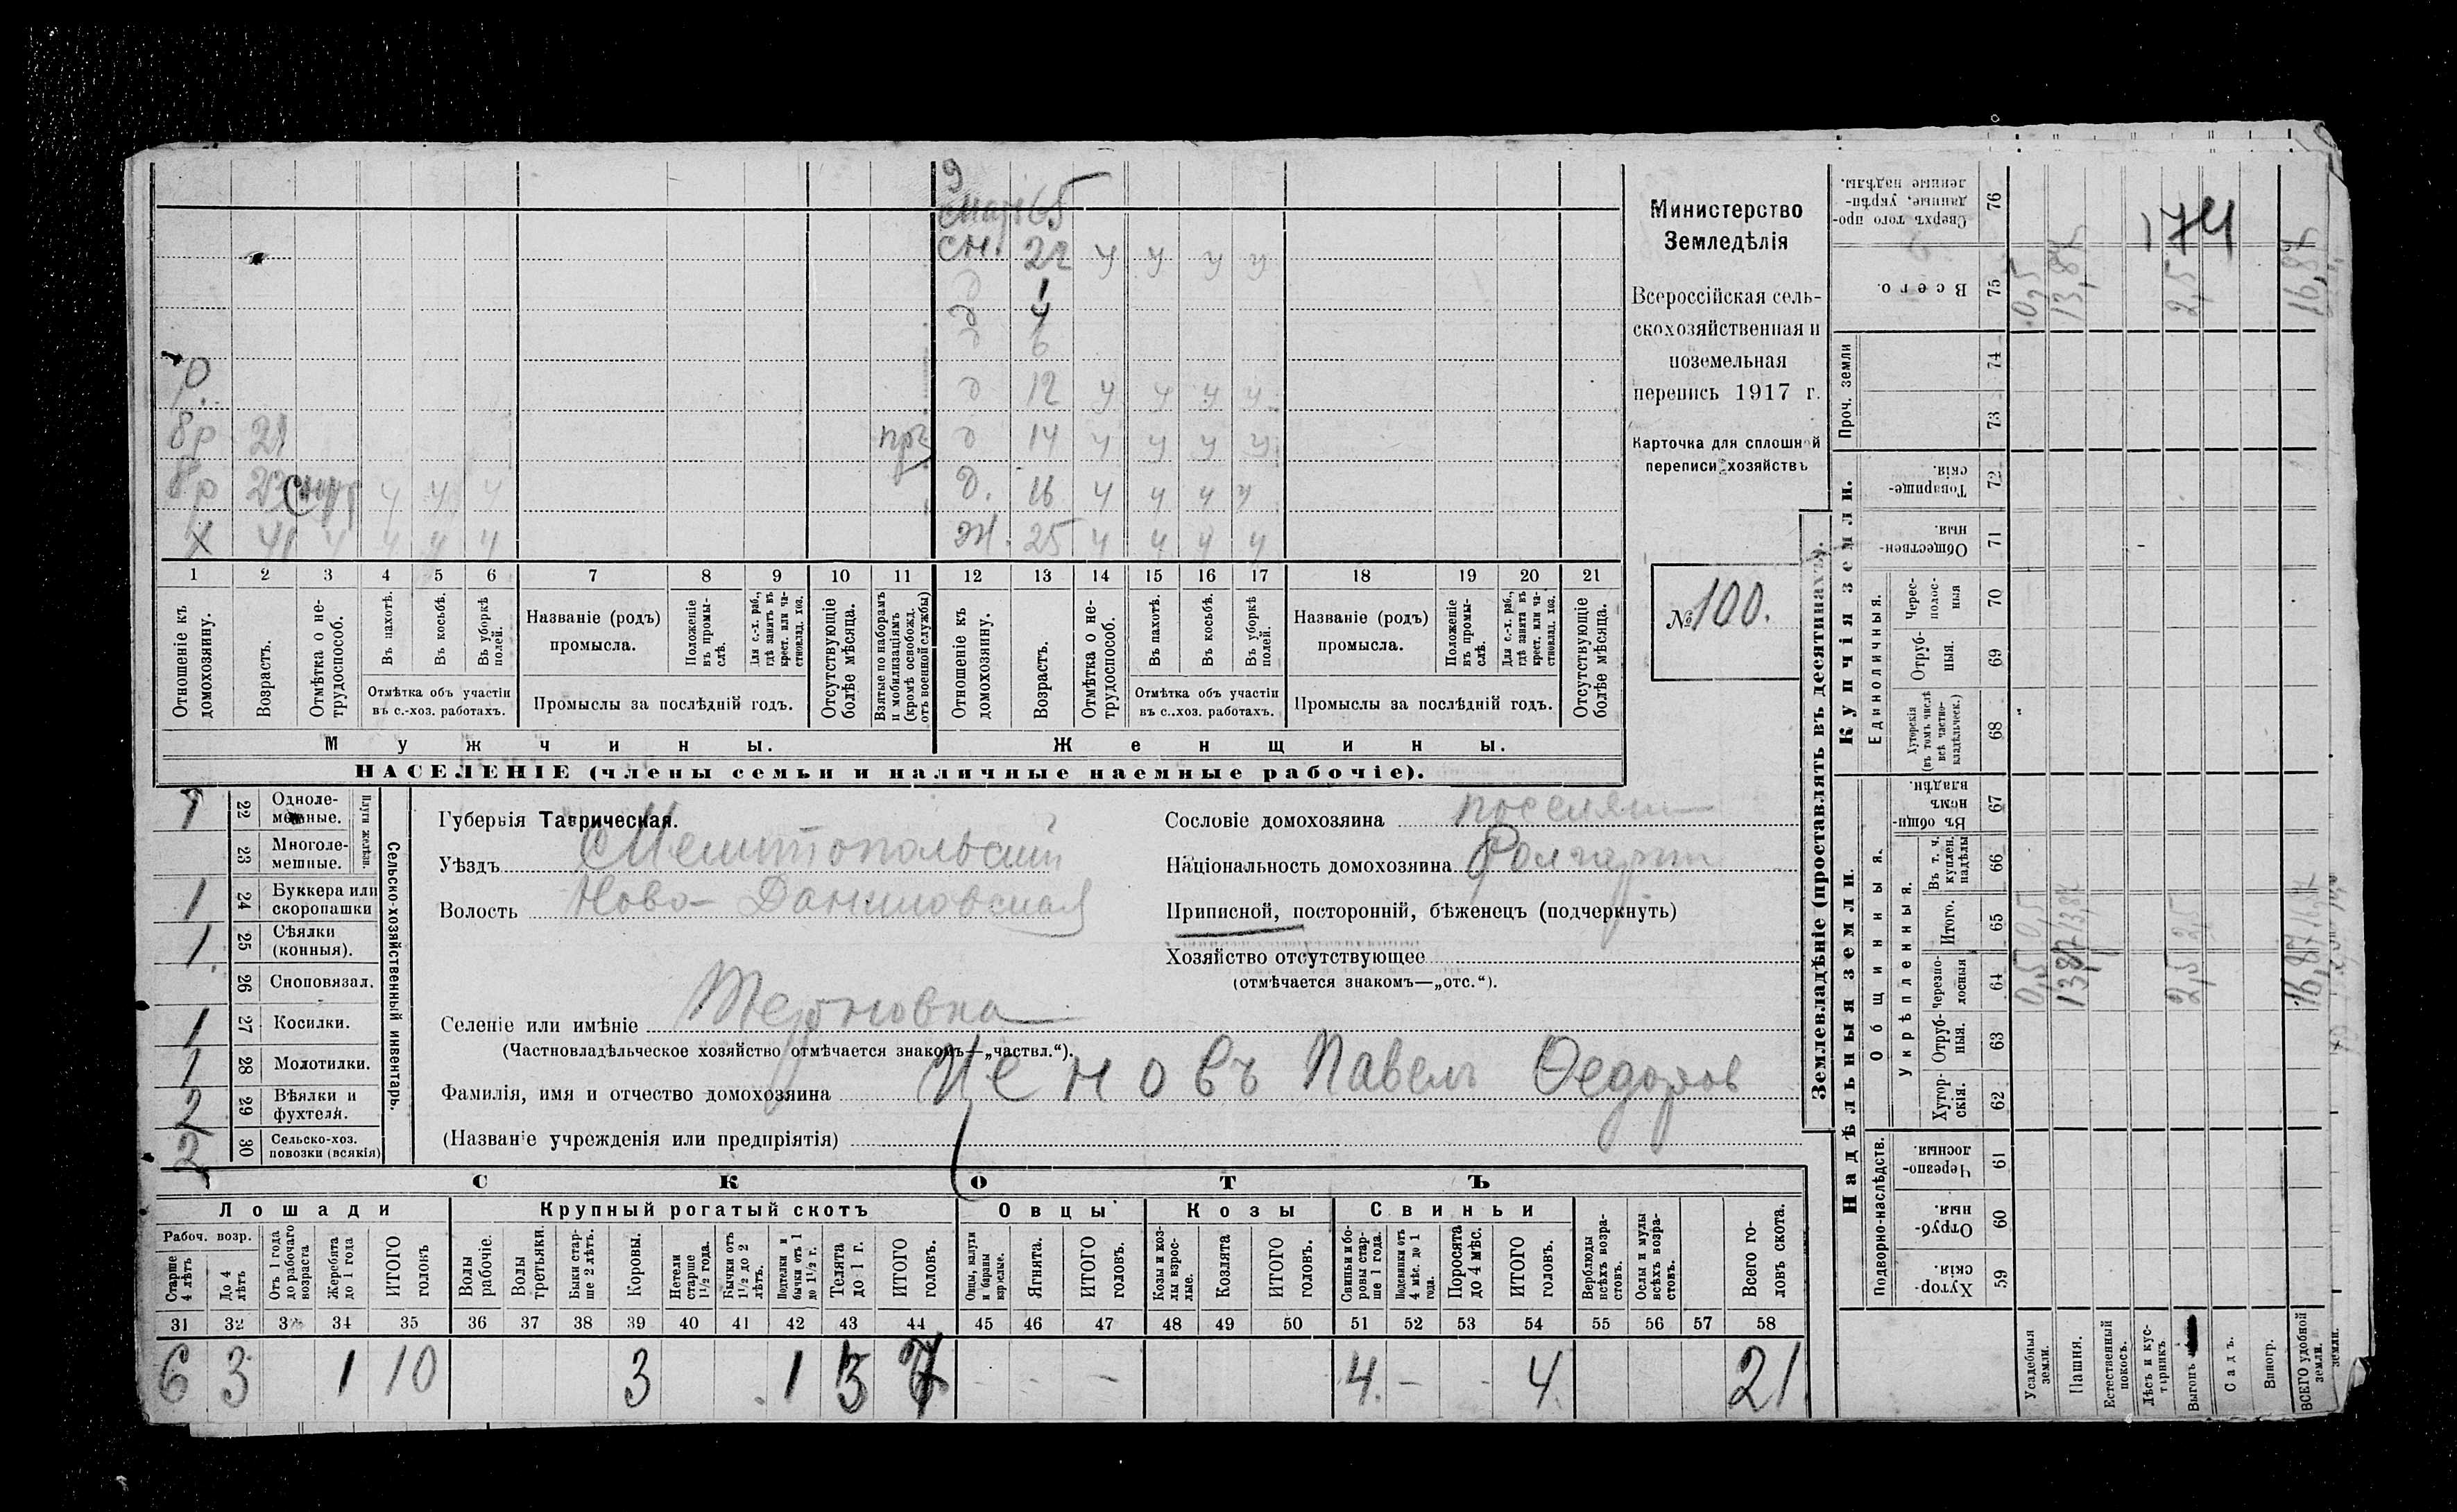 9
65
сн. 22 ч ч ч ч
д 1
д 4
д 6
р.
д 12 ч ч ч ч
бр 21
д 14 ч ч ч ч
бр 23 ч ч ч
д. 16 ч ч ч ч
х 41 ч ч ч ч
ж. 25 ч ч ч ч
1 2 3 4 5 6 7 8 9 10 11 12 13 14 15 16 17 18 19 20 21
Отношеніе къ домохозяину.
Возрастъ.
Отмѣтка о нетрудоспособ.
Въ пахотѣ.
Въ косьбѣ.
Въ уборкѣ полей.
Отмѣтка объ участіи въ с.-хоз. работахъ.
Названіе (родъ) промысла.
Положеніе въ промыслѣ.
Для с.-х. раб., гдѣ занятъ въ крест. или частновлад. хоз.
Промыслы за послѣдній годъ.
Отсутствующіе болѣе мѣсяца.
Взятые по наборамъ и мобилизаціямъ (кромѣ освобожд. отъ военной службы)
Отношеніе къ домохозяину.
Возрастъ.
Отмѣтка о нетрудоспособ.
Въ пахотѣ.
Въ косьбѣ.
Въ уборкѣ полей.
Отмѣтка объ участіи въ с.-хоз. работахъ.
Названіе (родъ) промысла.
Положеніе въ промыслѣ.
Для с.-х. раб., гдѣ занята въ крест. или частновлад. хоз.
Промыслы за послѣдній годъ.
Отсутствующіе болѣе мѣсяца.
Мужчины.
Женщины.
НАСЕЛЕНІЕ (члены семьи и наличные наемные рабочіе).
Министерство
Земледѣлія
Всероссійская сель-
скохозяйственная и
поземельная
перепись 1917 г.
Карточка для сплошной
переписи хозяйствъ
№ 100.
Сельско-хозяйственный инвентарь.
Плуги желѣзн.
1 22 Одноле-
мешные.
23 Многоле-
мешные.
1 24 Буккера или
скоропашки
1 25 Сѣялки
(конныя).
26 Сноповязал.
1 27 Косилки.
1 28 Молотилки.
2 29 Вѣялки и
фухтеля.
2 30 Сельско-хоз.
повозки (всякія)
Губернія Таврическая.
Уѣздъ Мелитопольскій
Волость Ново-Даниловская
Селеніе или имѣніе Терновка
(Частновладѣльческое хозяйство отмѣчается знакомъ—„частвл.“).
Фамилія, имя и отчество домохозяина Ценовъ Павелъ Ѳедоров
(Названіе учрежденія или предпріятія)
Сословіе домохозяина поселян
Національность домохозяина болгаринъ
Приписной, посторонній, бѣженецъ (подчеркнуть)
Хозяйство отсутствующее
(отмѣчается знакомъ—„отс.“).
СКОТЪ
Лошади
Крупный рогатый скотъ
Овцы
Козы
Свиньи
Рабоч. возр.
Старше 4 лѣтъ
До 4 лѣтъ
Отъ 1 года до рабочаго возраста
Жеребята до 1 года
ИТОГО головъ
Волы рабочіе.
Волы третьяки.
Быки старше 2 лѣтъ.
Коровы.
Нетели старше 1 1/2 года.
Бычки отъ 1 1/2 до 2 лѣтъ.
Подтелки и бычки отъ 1 до 1 1/2 г.
Телята до 1 г.
ИТОГО головъ.
Овцы, валухи и бараны взрослые.
Ягнята.
ИТОГО головъ.
Козы и козлы взрослые.
Козлята
ИТОГО головъ.
Свиньи и боровы старше 1 года.
Подсвинки отъ 4 мѣс. до 1 года.
Поросята до 4 мѣс.
ИТОГО головъ.
Верблюды всѣхъ возрастовъ.
Ослы и мулы всѣхъ возрастовъ.
Всего головъ скота.
31 32 33 34 35 36 37 38 39 40 41 42 43 44 45 46 47 48 49 50 51 52 53 54 55 56 57 58
6 3 1 10 3 1 3 7 - - - 4. - - 4. 21
Землевладѣніе (проставлять въ десятинахъ).
Надѣльныя земли.
Купчія земли.
Проч. земли
Подворно-наслѣдств.
Общинныя.
Укрѣпленныя.
Единоличныя.
Сверхъ того проданные, укрѣпленные надѣлы. 76
Всего. 75
74
73
Товарищескія. 72
Общественныя. 71
Чересполосныя 70
Отрубныя. 69
Хуторскія (въ томъ числѣ всѣ частновладѣльческ.) 68
Въ общинномъ владѣн. 67
Въ т. ч. куплен. надѣлы 66
Итого. 65
Черезполосныя 64
Отрубныя. 63
Хуторскія. 62
Черезполосныя. 61
Отрубныя. 60
Хуторскія. 59
174
0,5 13,87 2,5 16,87
0,5 13,87 2,5 16,87
0,5 13,87 2,5 16,87
Усадебныя земли.
Пашня.
Естественный покосъ.
Лѣсъ и кустарникъ
Выгонъ
Садъ.
Виногр.
ВСЕГО удобной земли.